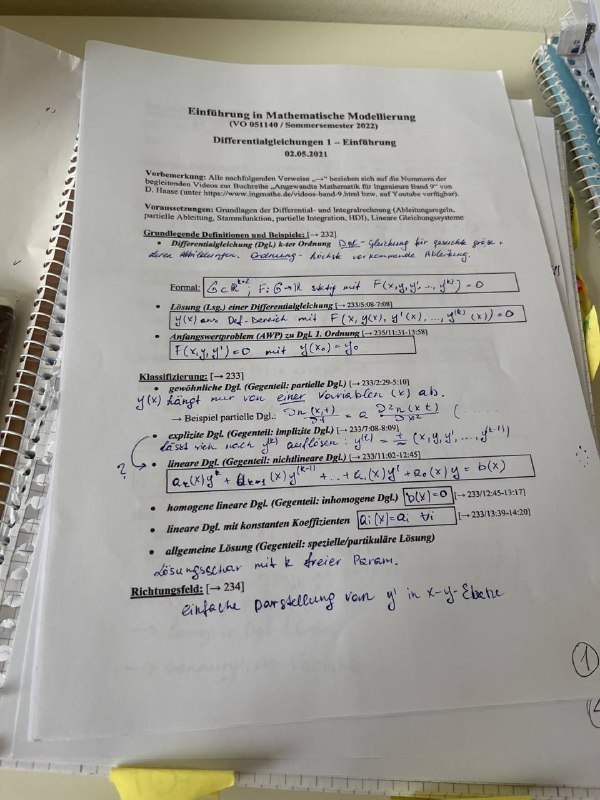 Einführung in Mathematische Modellierung
(VO 051140 / Sommersemester 2022)
Differentialgleichungen 1 – Einführung
02.05.2021
Vorbemerkung: Alle nachfolgenden Verweise „→“ beziehen sich auf die Nummern der
begleitenden Videos zur Buchreihe „Angewandte Mathematik für Ingenieure Band 9“ von
D. Haase (unter https://www.ingmathe.de/videos-band-9.html bzw. auf Youtube verfügbar).
Voraussetzungen: Grundlagen der Differential- und Integralrechnung (Ableitungsregeln,
partielle Ableitung, Stammfunktion, partielle Integration, HDI), Lineare Gleichungssysteme
Grundlegende Definitionen und Beispiele: [→ 232]
• Differentialgleichung (Dgl.) k-ter Ordnung Dgl - Gleichung für gesuchte
deren Ableitungen. Ordnung - höchste vorkommende Ableitung.
Formal: G ⊂ R^{k+2}, F: G → R stetig mit F(x, y, y', ..., y^{(k)}) = 0
• Lösung (Lsg.) einer Differentialgleichung [→ 233/5:08-7:08]
y(x) aus Def-bereich mit F(x, y(x), y'(x), ..., y^{(k)}(x)) = 0
• Anfangswertproblem (AWP) zu Dgl. 1. Ordnung [→ 235/11:31-13:58]
F(x, y, y') = 0 mit y(x₀) = y₀
Klassifizierung: [→ 233]
• gewöhnliche Dgl. (Gegenteil: partielle Dgl.) [→ 233/2:29-5:10]
y(x) hängt nur von einer Variablen (x) ab.
→ Beispiel partielle Dgl.: ∂n(x,t)/∂t = a ∂²n(x t)/∂x² (.....
• explizite Dgl. (Gegenteil: implizite Dgl.) [→ 233/7:08-8:09]
lässt sich nach y^{k)} auflösen: (x, y, y', ..., y^{(k-1)})
? • lineare Dgl. (Gegenteil: nichtlineare Dgl.) [→ 233/11:02-12:45]
a_k(x) y^{k} + a_{k-1}(x) y^{(k-1)} + ... + a₁(x) y' + a₀(x) y = b(x)
• homogene lineare Dgl. (Gegenteil: inhomogene Dgl.) b(x)=0 [→ 233/12:45-13:17]
• lineare Dgl. mit konstanten Koeffizienten ai(x) = ai ∀i [→ 233/13:39-14:20]
• allgemeine Lösung (Gegenteil: spezielle/partikuläre Lösung)
Lösungsschar mit k freier Param.
Richtungsfeld: [→ 234]
einfache Darstellung von y' in x-y-Ebene
1